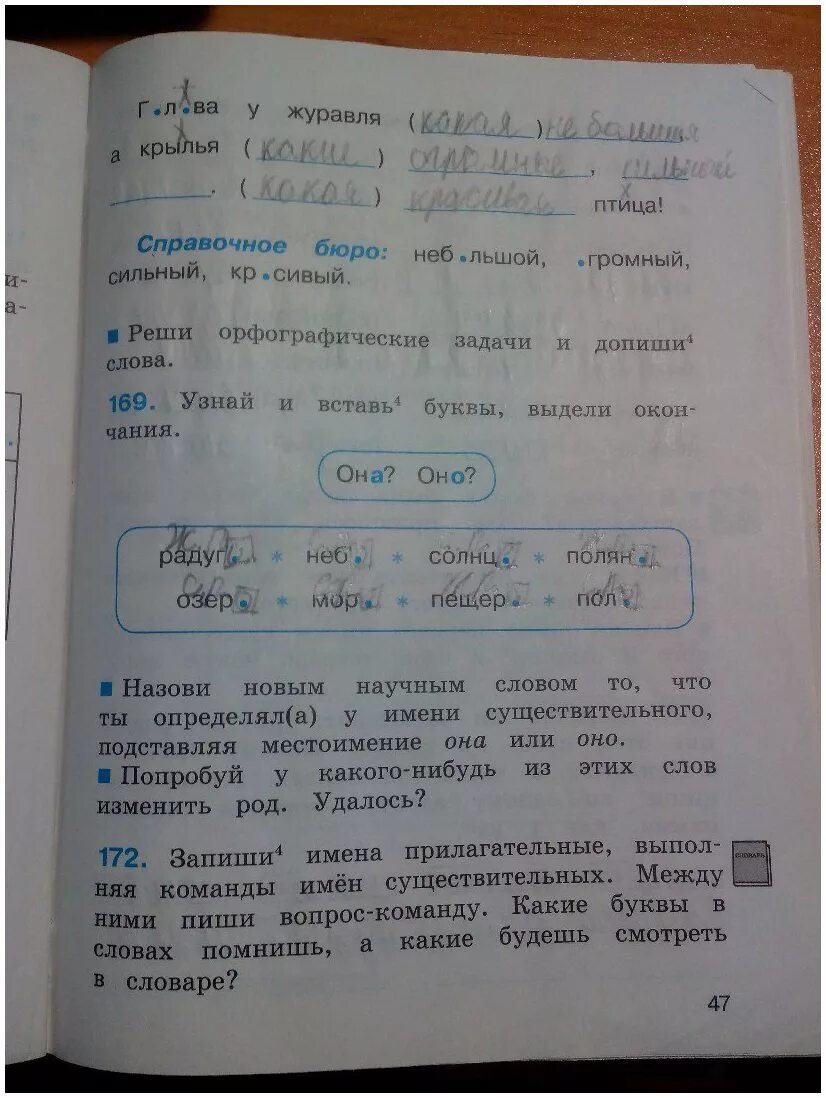 Г.л.ва у журавля (какая) не большая
а крылья (какие) огромные, сильный
. (какая) красивая птица!
Справочное бюро: неб.льшой, .громный,
сильный, кр.сивый.
Реши орфографические задачи и допиши⁴
слова.
169. Узнай и вставь⁴ буквы, выдели окон-
чания.
Она? Оно?
радуг. * неб. * солнц. * полян.
озер. * мор. * пещер. * пол.
Назови новым научным словом то, что
ты определял(а) у имени существительного,
подставляя местоимение она или оно.
Попробуй у какого-нибудь из этих слов
изменить род. Удалось?
172. Запиши⁴ имена прилагательные, выпол-
няя команды имён существительных. Между
ними пиши вопрос-команду. Какие буквы в
словах помнишь, а какие будешь смотреть
в словаре?
СЛОВАРЬ
47
и-
а-